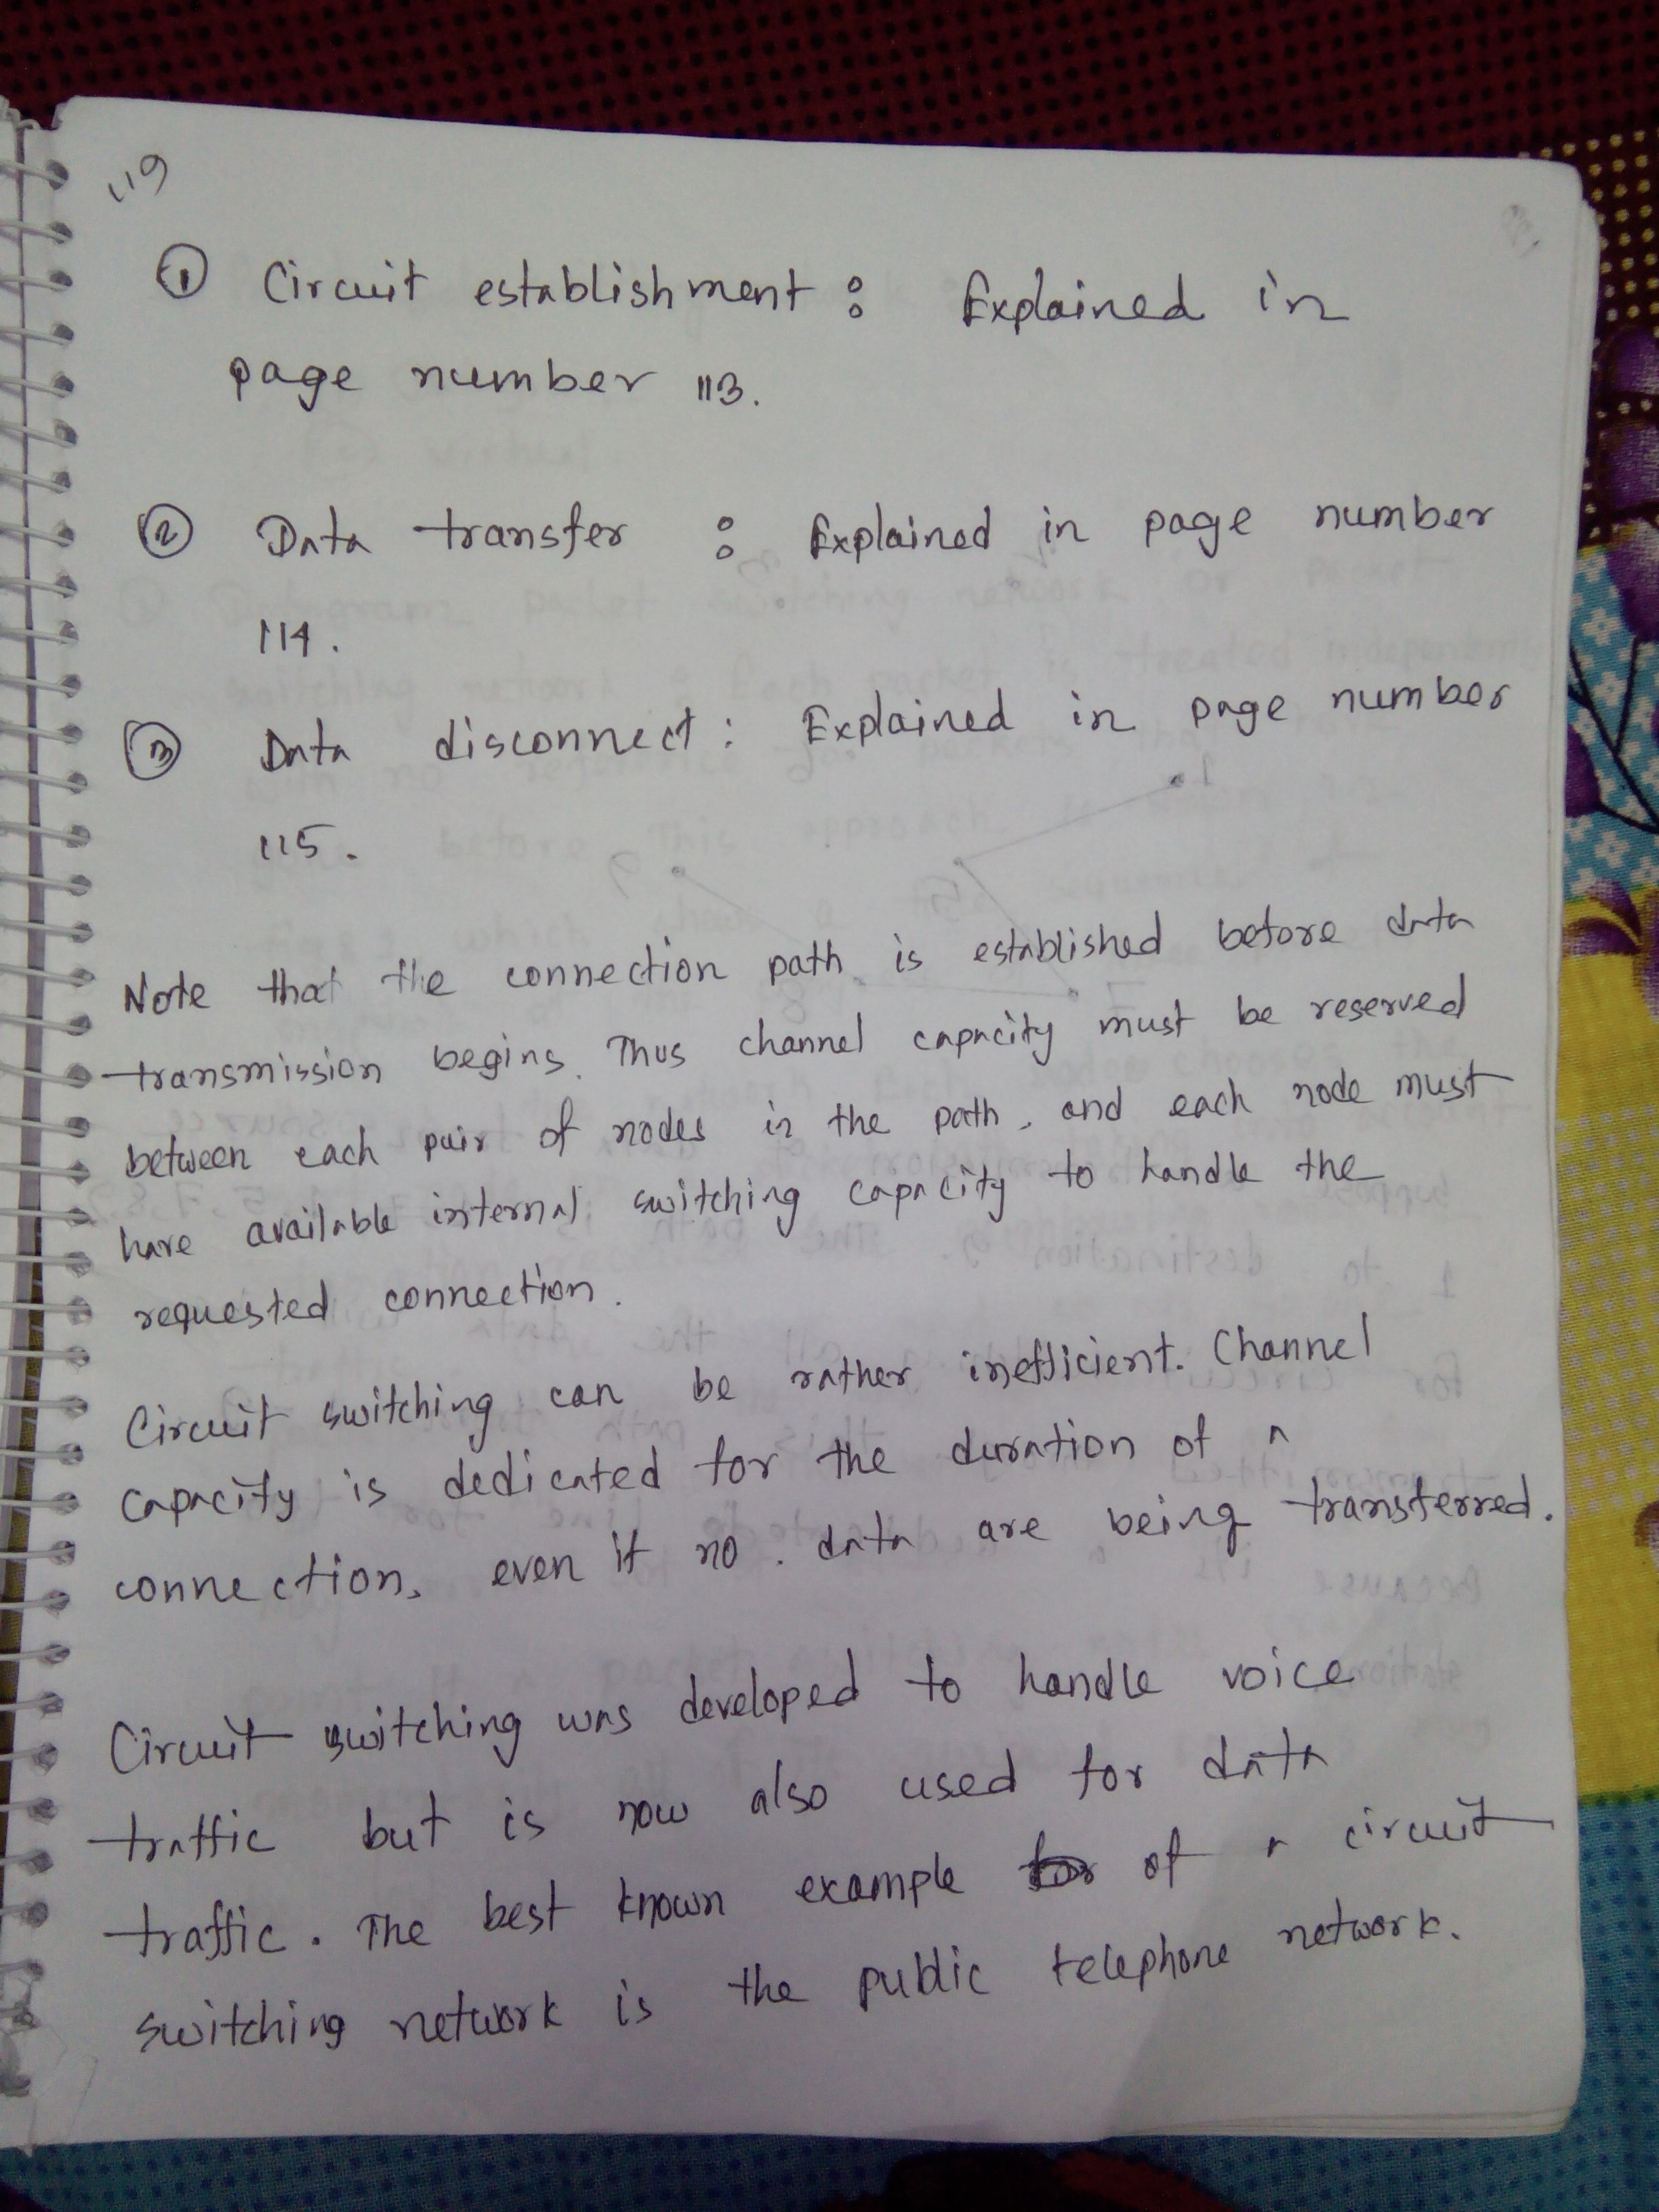 119
① Circuit establishment : Explained in
page number 113.
② Data transfer : Explained in page number
114.
③ Data disconnect : Explained in page number
115.
Note that the connection path is established before data
transmission begins. Thus channel capacity must be reserved
between each pair of nodes in the path, and each node must
have available internal switching capacity to handle the
requested connection.
Circuit switching can be rather inefficient. Channel
capacity is dedicated for the duration of a
connection, even if no data are being transferred.
Circuit switching was developed to handle voice
traffic but is now also used for data
traffic. The best known example of a circuit
switching network is the public telephone network.